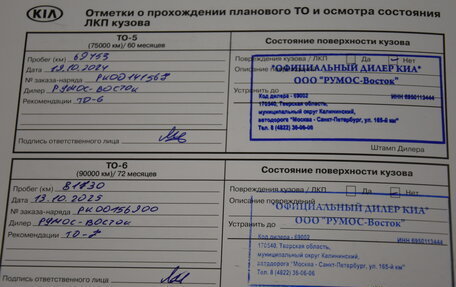 KIA
Отметки о прохождении планового ТО и осмотра состояния
ЛКП кузова
ТО-5
(75000 км)/ 60 месяцев
Состояние поверхности кузова
Пробег (км) 69753
Повреждения кузова / ЛКП Да Нет
Дата 19.10.2024
Описание
№ заказа-наряда РК00141568
Дилер РУМОС-ВОСТОК
Устранить до
Рекомендации ТО-6
"ОФИЦИАЛЬНЫЙ ДИЛЕР КИА"
ООО "РУМОС-Восток"
Код дилера - 69002
ИНН 6950113444
170540, Тверская область,
муниципальный округ Калининский,
автодорога "Москва - Санкт-Петербург, ул. 165-й км"
Тел. 8 (4822) 36-06-06
Подпись ответственного лица
Штамп Дилера
ТО-6
(90000 км)/ 72 месяцев
Состояние поверхности кузова
Пробег (км) 81830
Повреждения кузова / ЛКП Да Нет
Дата 13.10.2025
Описание повреждений
№ заказа-наряда РК00156900
Дилер РУМОС-ВОСТОК
Устранить до
Рекомендации ТО-7
"ОФИЦИАЛЬНЫЙ ДИЛЕР КИА"
ООО "РУМОС-Восток"
Код дилера - 69002
ИНН 6950113444
170540, Тверская область,
муниципальный округ Калининский,
автодорога "Москва - Санкт-Петербург, ул. 165-й км"
Тел. 8 (4822) 36-06-06
Подпись ответственного лица